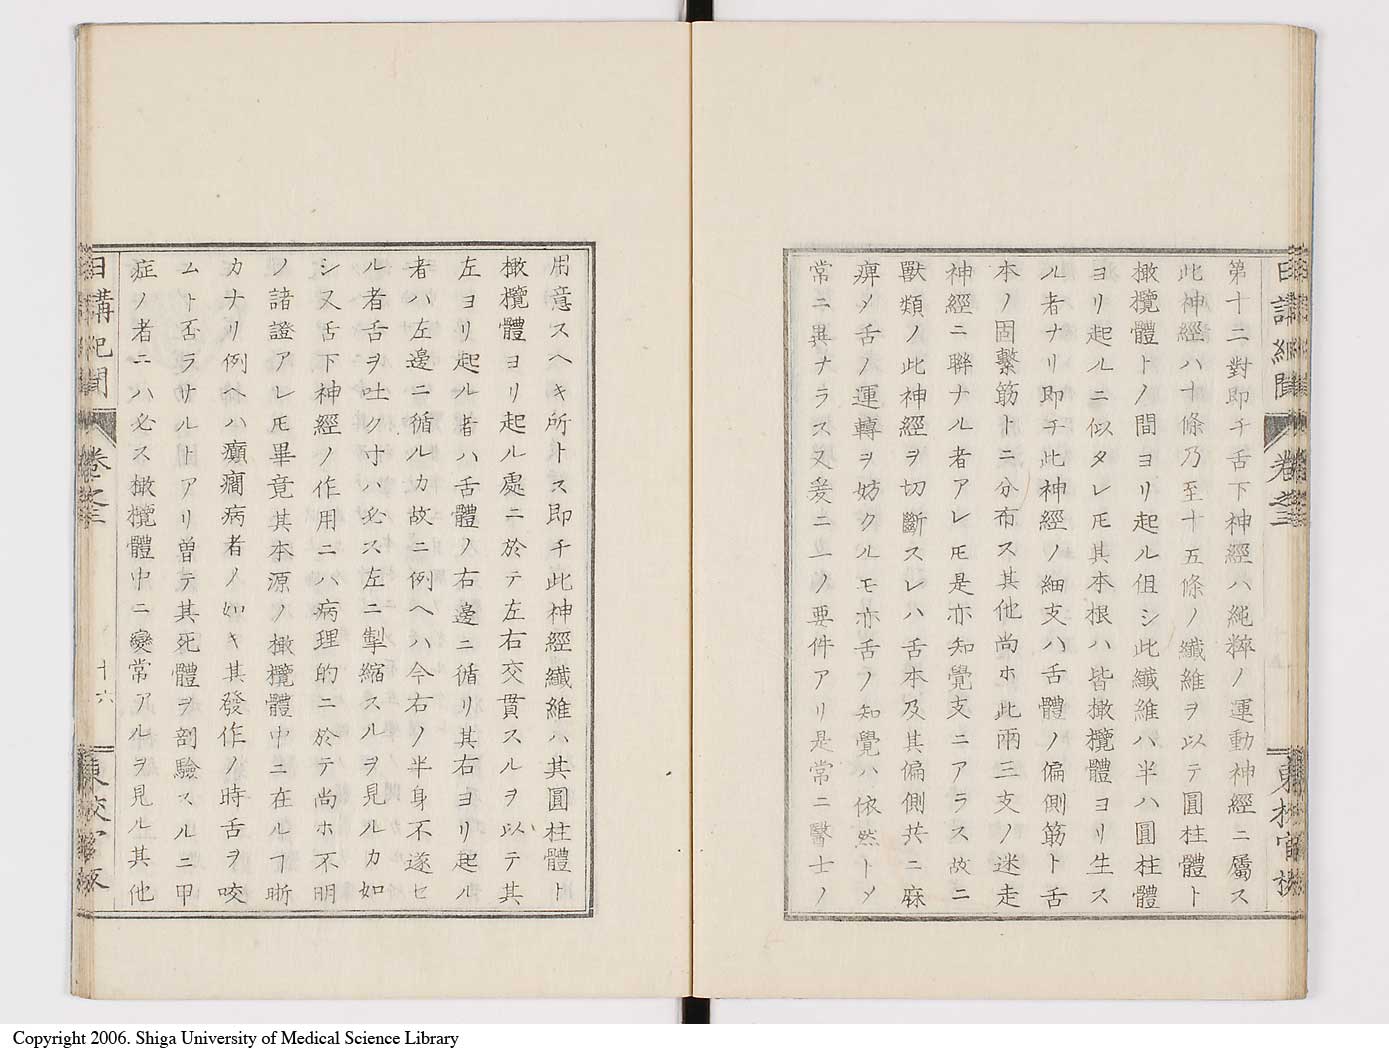 第十二對即チ舌下神經ハ純粹ノ運動神經ニ屬ス
此神經ハ十條乃至十五條ノ纎維ヲ以テ圓柱體ト
橄欖體トノ間ヨリ起ル但シ此纎維ハ半ハ圓柱體
ヨリ起ルニ似タレ𪜈其本根ハ皆橄欖體ヨリ生ス
ル者ナリ即チ此神經ノ細支ハ舌體ノ偏側筋ト舌
本ノ固繫筋トニ分布ス其他尚ホ此兩三支ノ迷走
神經ニ聯ナル者アレ𪜈是亦知覺支ニアラス故ニ
獸類ノ此神經ヲ切斷スレハ舌本及其偏側共ニ麻
痺メ舌ノ運轉ヲ妨クルモ亦舌ノ知覺ハ依然トメ
常ニ異ナラス又爰ニ一ノ要件アリ是常ニ醫士ノ
用意スヘキ所トス即チ此神經纎維ハ其圓柱體ト
橄欖體ヨリ起ル處ニ於テ左右交貫スルヲ以テ其
左ヨリ起ル者ハ舌體ノ右邊ニ循リ其右ヨリ起ル
者ハ左邊ニ循ルカ故ニ例ヘハ今右ノ半身不遂セ
ル者舌ヲ吐ク寸ハ必ス左ニ掣縮スルヲ見ルカ如
シ又舌下神經ノ作用ニハ病理的ニ於テ尚ホ不明
ノ諸證アレ𪜈畢竟其本源ノ橄欖體中ニ在ルヿ晰
カナリ例ヘハ癲癇病者ノ如キ其發作ノ時舌ヲ咬
ムト否ラサルトアリ曽テ其死體ヲ剖驗スルニ甲
症ノ者ニハ必ス橄欖體中ニ變常アルヲ見ル其他
日講紀聞
卷之三
十六
Copyright 2006. Shiga University of Medical Science Library